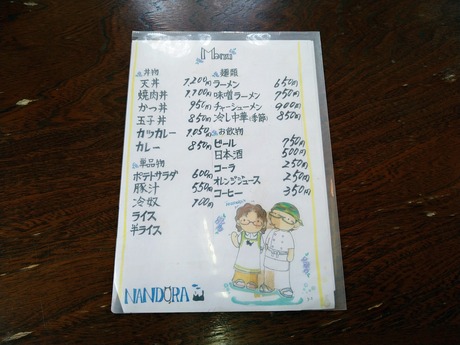 Menu
丼物
天丼 1,200円
焼肉丼 1,100円
かつ丼 950円
玉子丼 850円
カツカレー 1,050円
カレー 850円
単品物
ポテトサラダ 600円
豚汁 550円
冷奴 100円
ライス
半ライス
麺類
ラーメン 650円
味噌ラーメン 750円
チャーシューメン 900円
冷し中華(季節) 850円
お飲物
ビール 750円
日本酒 500円
コーラ 250円
オレンジジュース 250円
コーヒー 350円
NANDORA